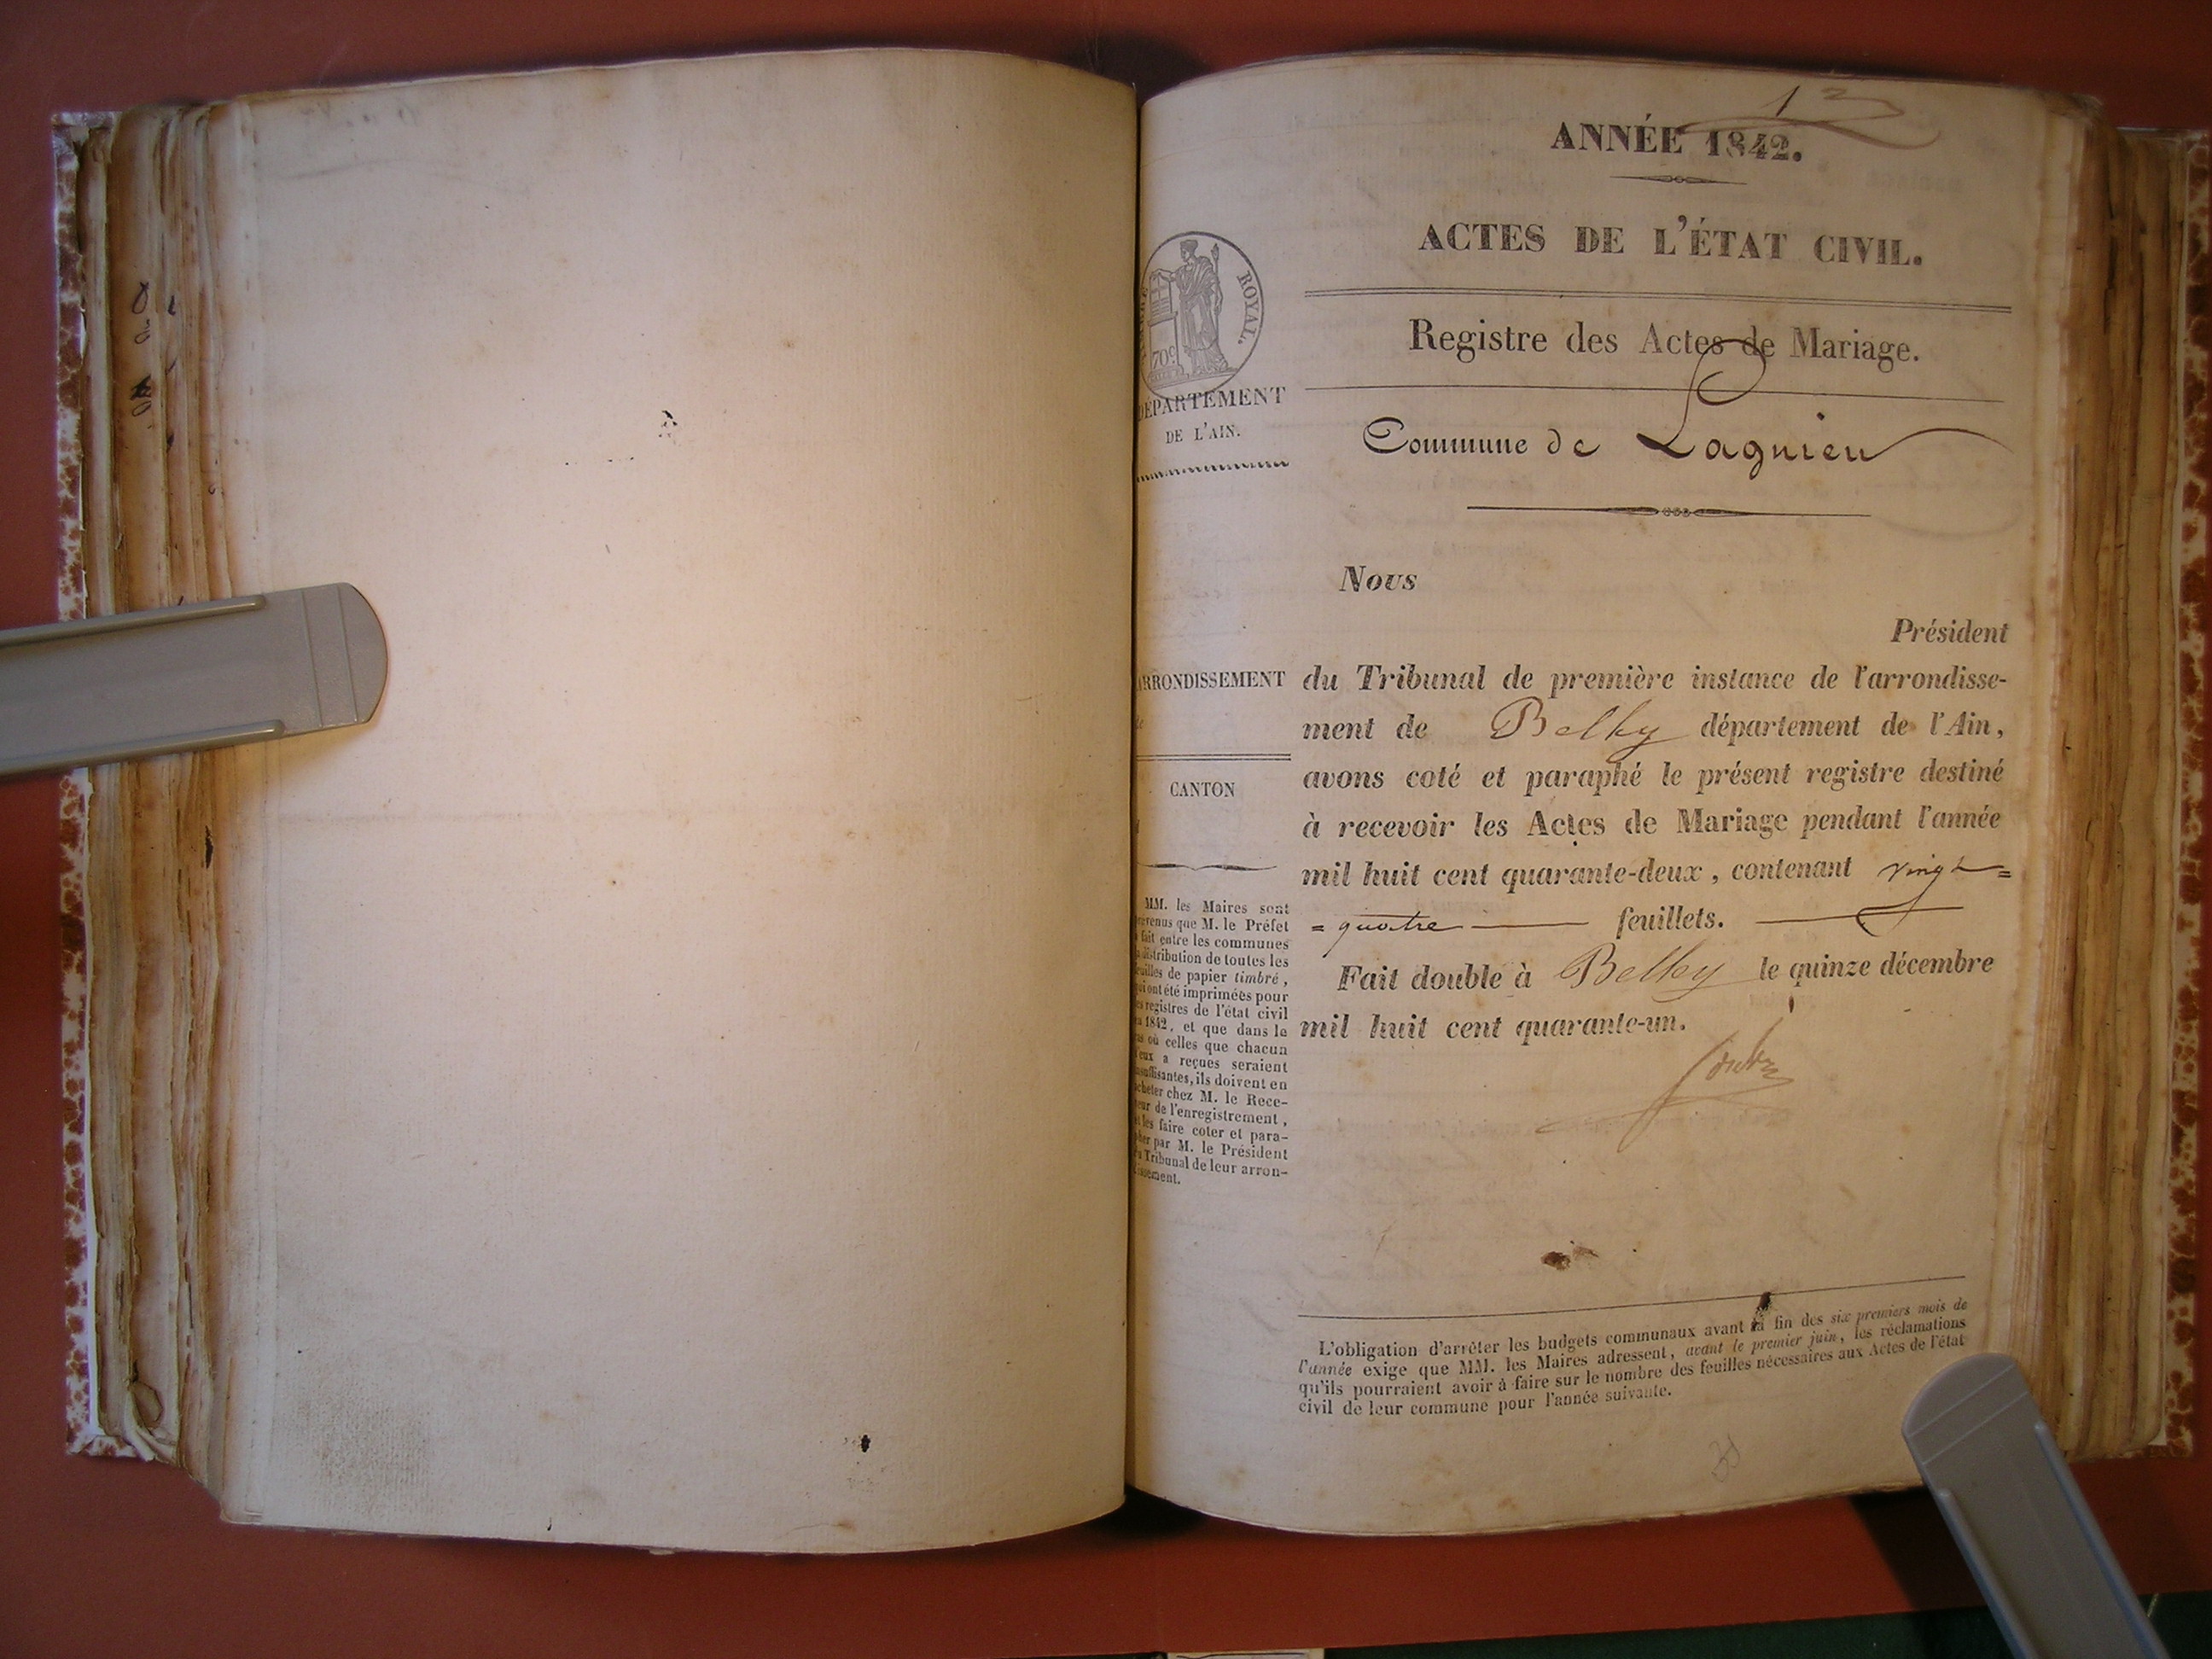 1
ANNÉE 1842.
ACTES DE L'ÉTAT CIVIL.
Registre des Actes de Mariage.
Commune de Lagnieu
ROYAL.
70c
DÉPARTEMENT
DE L'AIN.
ARRONDISSEMENT
de
CANTON
MM. les Maires sont
prévenus que M. le Préfet
a fait entre les communes
la distribution de toutes les
feuilles de papier timbré,
qui ont été imprimées pour
les registres de l'état civil
en 1842, et que dans le
cas où celles que chacun
d'eux a reçues seraient
insuffisantes, ils doivent en
acheter chez M. le Rece-
veur de l'enregistrement,
et les faire coter et para-
pher par M. le Président
du Tribunal de leur arron-
dissement.
Nous
Président
du Tribunal de première instance de l'arrondisse-
ment de Belley département de l'Ain,
avons coté et paraphé le présent registre destiné
à recevoir les Actes de Mariage pendant l'année
mil huit cent quarante-deux, contenant vingt=
=quatre feuillets.
Fait double à Belley le quinze décembre
mil huit cent quarante-un.
L'obligation d'arrêter les budgets communaux avant la fin des six premiers mois de
l'année exige que MM. les Maires adressent, avant le premier juin, les réclamations
qu'ils pourraient avoir à faire sur le nombre des feuilles nécessaires aux Actes de l'état
civil de leur commune pour l'année suivante.